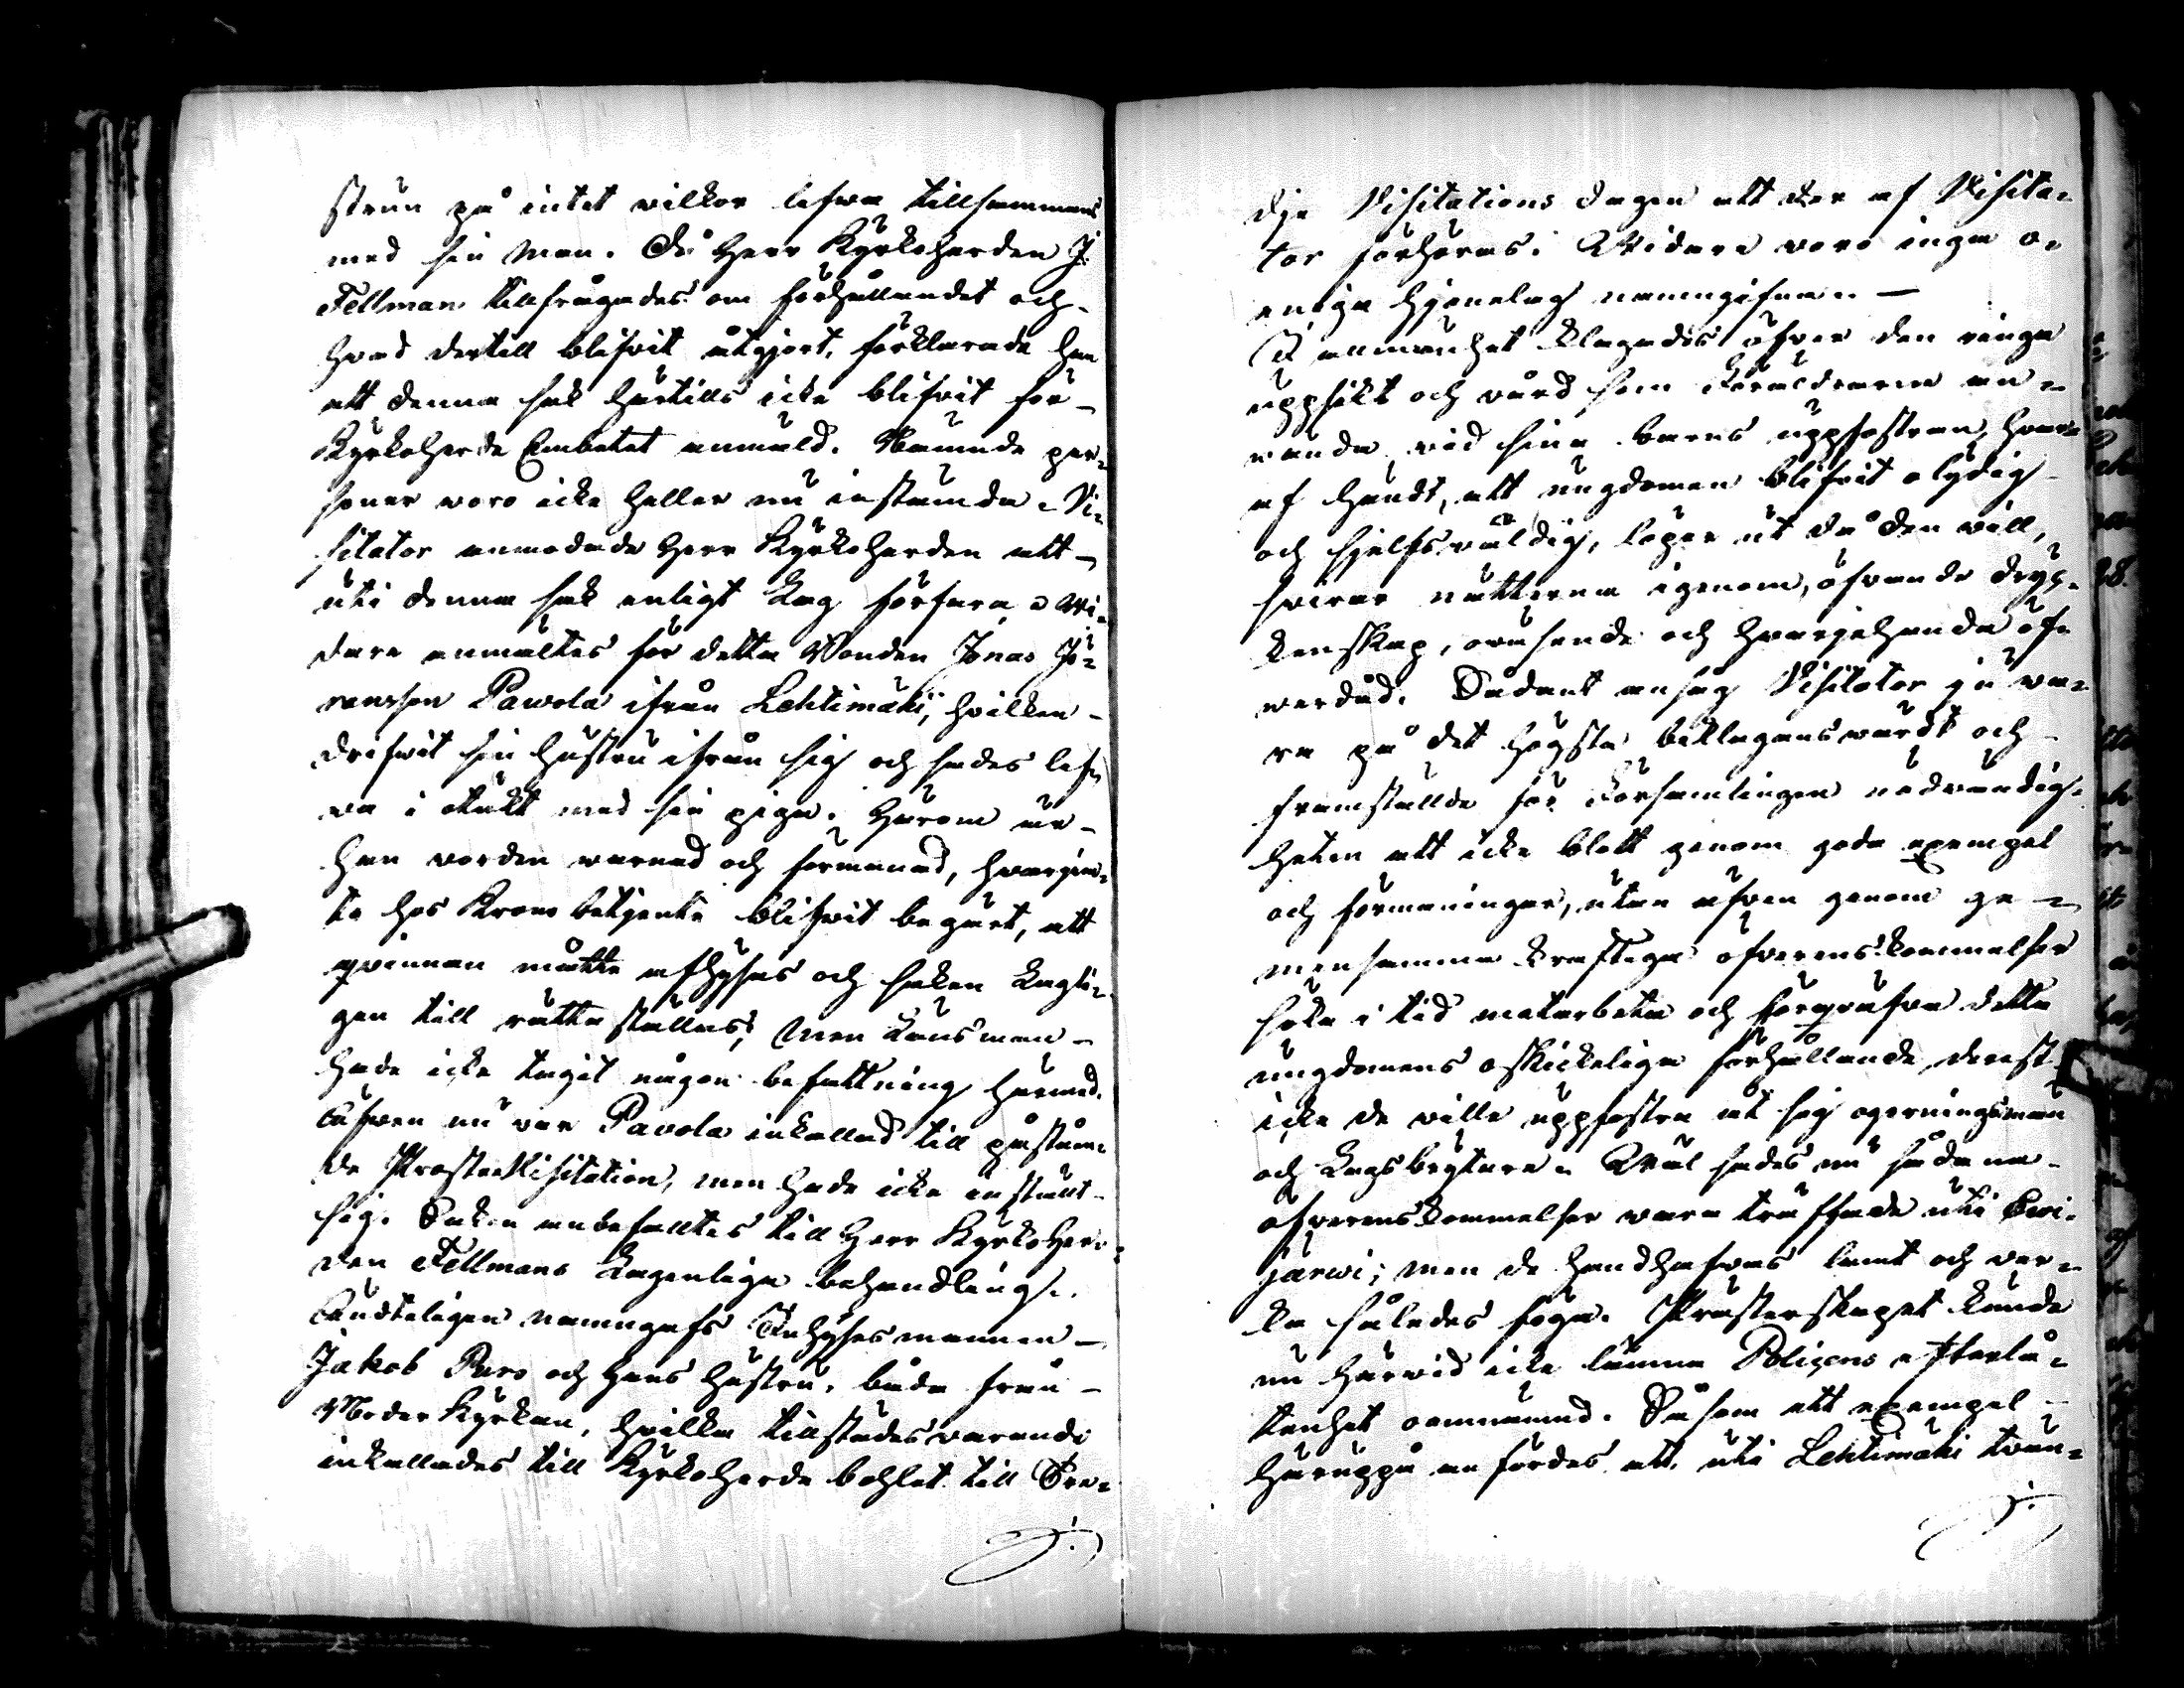 strun på intet vilkor lefva tillsammans
med sin man. Då Herr Kyrkoherden J.
Fellman tillfrågades om förhållandet och
hvad dertill blifvit åtgjort, förklarade han
att denna sak härtills icke blifvit för
Kyrkoherde Embetet anmäld. Nämnde per-
soner woro icke heller nu instämda. Vi-
sitator anmodade Herr Kyrkoherden att
uti denna sak enligt Lag förfara. Wi-
dare anmältes för detta Bonden Jonas Jö-
ransson Pawola ifrån Lehtimäki, hvilken
drifvit sin hustru ifrån sig och sades lef-
va i otukt med sin piga. Härom är
han vorden warnad och förmanad, hvarjem-
te hos Krono betjente blifvit begärt, att
qvinnan måtte afhysas och saken Lagli-
gen till rätta ställas; men Länsman
hade icke tagit någon befattning härmed.
Äfven nu var Pavola inkallad till påståen-
de Prosta Visitation, men hade icke inställt
sig. Saken anbefalltes till Herr Kyrkoher-
den Fellmans Lagenliga behandling.
Ändteligen namngafs Inhyses mannen
Jakob Puro och hans hustru, båda från
Moder Kyrkan, hvilka tillstädesvarande
inkallades till Kyrkoherde bohlet till Tre-
dje Visitations dagen att der af Visita-
tor förhöras. Widare voro inga o-
eniga hjonelag namngifna. —
I allmänhet klagades öfver den ringa
uppsikt och vård som Föräldrarne an-
vända vid sina barns uppfostran, hvar-
af händt, att ungdomen blifvit olydig
och sjelfsvåldig, löper ut då den vill,
svirar nätterna igenom, öfvande dryc-
kenskap, oväsende och hvarjehanda öf-
verdåd. Sådant ansåg Visitator ju va-
ra på det högsta beklagansvärdt och
framställde för Församlingen nödvändig-
heten att icke blott genom goda exempel
och förmaningar, utan äfven genom ge-
mensamma kraftiga öfverenskommelser
söka i tid motarbeta och förqväfva detta
ungdomens oskickeliga förhållande, derest
icke de ville uppfostra åt sig ogerningsmän
och Lagsbrytare. Wäl sades nu sådana
öfverenskommelser vara träffade uti Soi-
järwi; men de handhafvas lamt och ver-
ka således föga. Prästerskapet kunde
nu härvid icke lämna Poliçens efterlå-
tenhet onämnd. Såsom ett exempel
häruppå anfördes att uti Lehtimäki tvän-